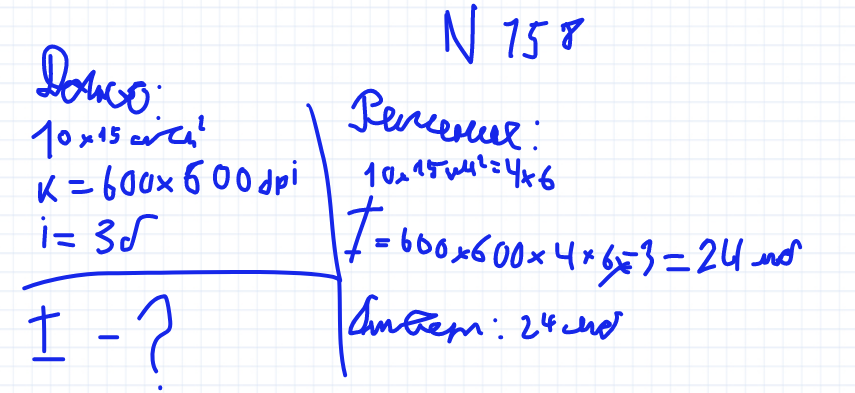 N 158
Дано:
10×15 см²
K = 600×600 dpi
i = 3б
I - ?
Решение:
10×15 см² = 4×6
I = 600×600×4×6×3 = 24 мб
Ответ: 24 мб